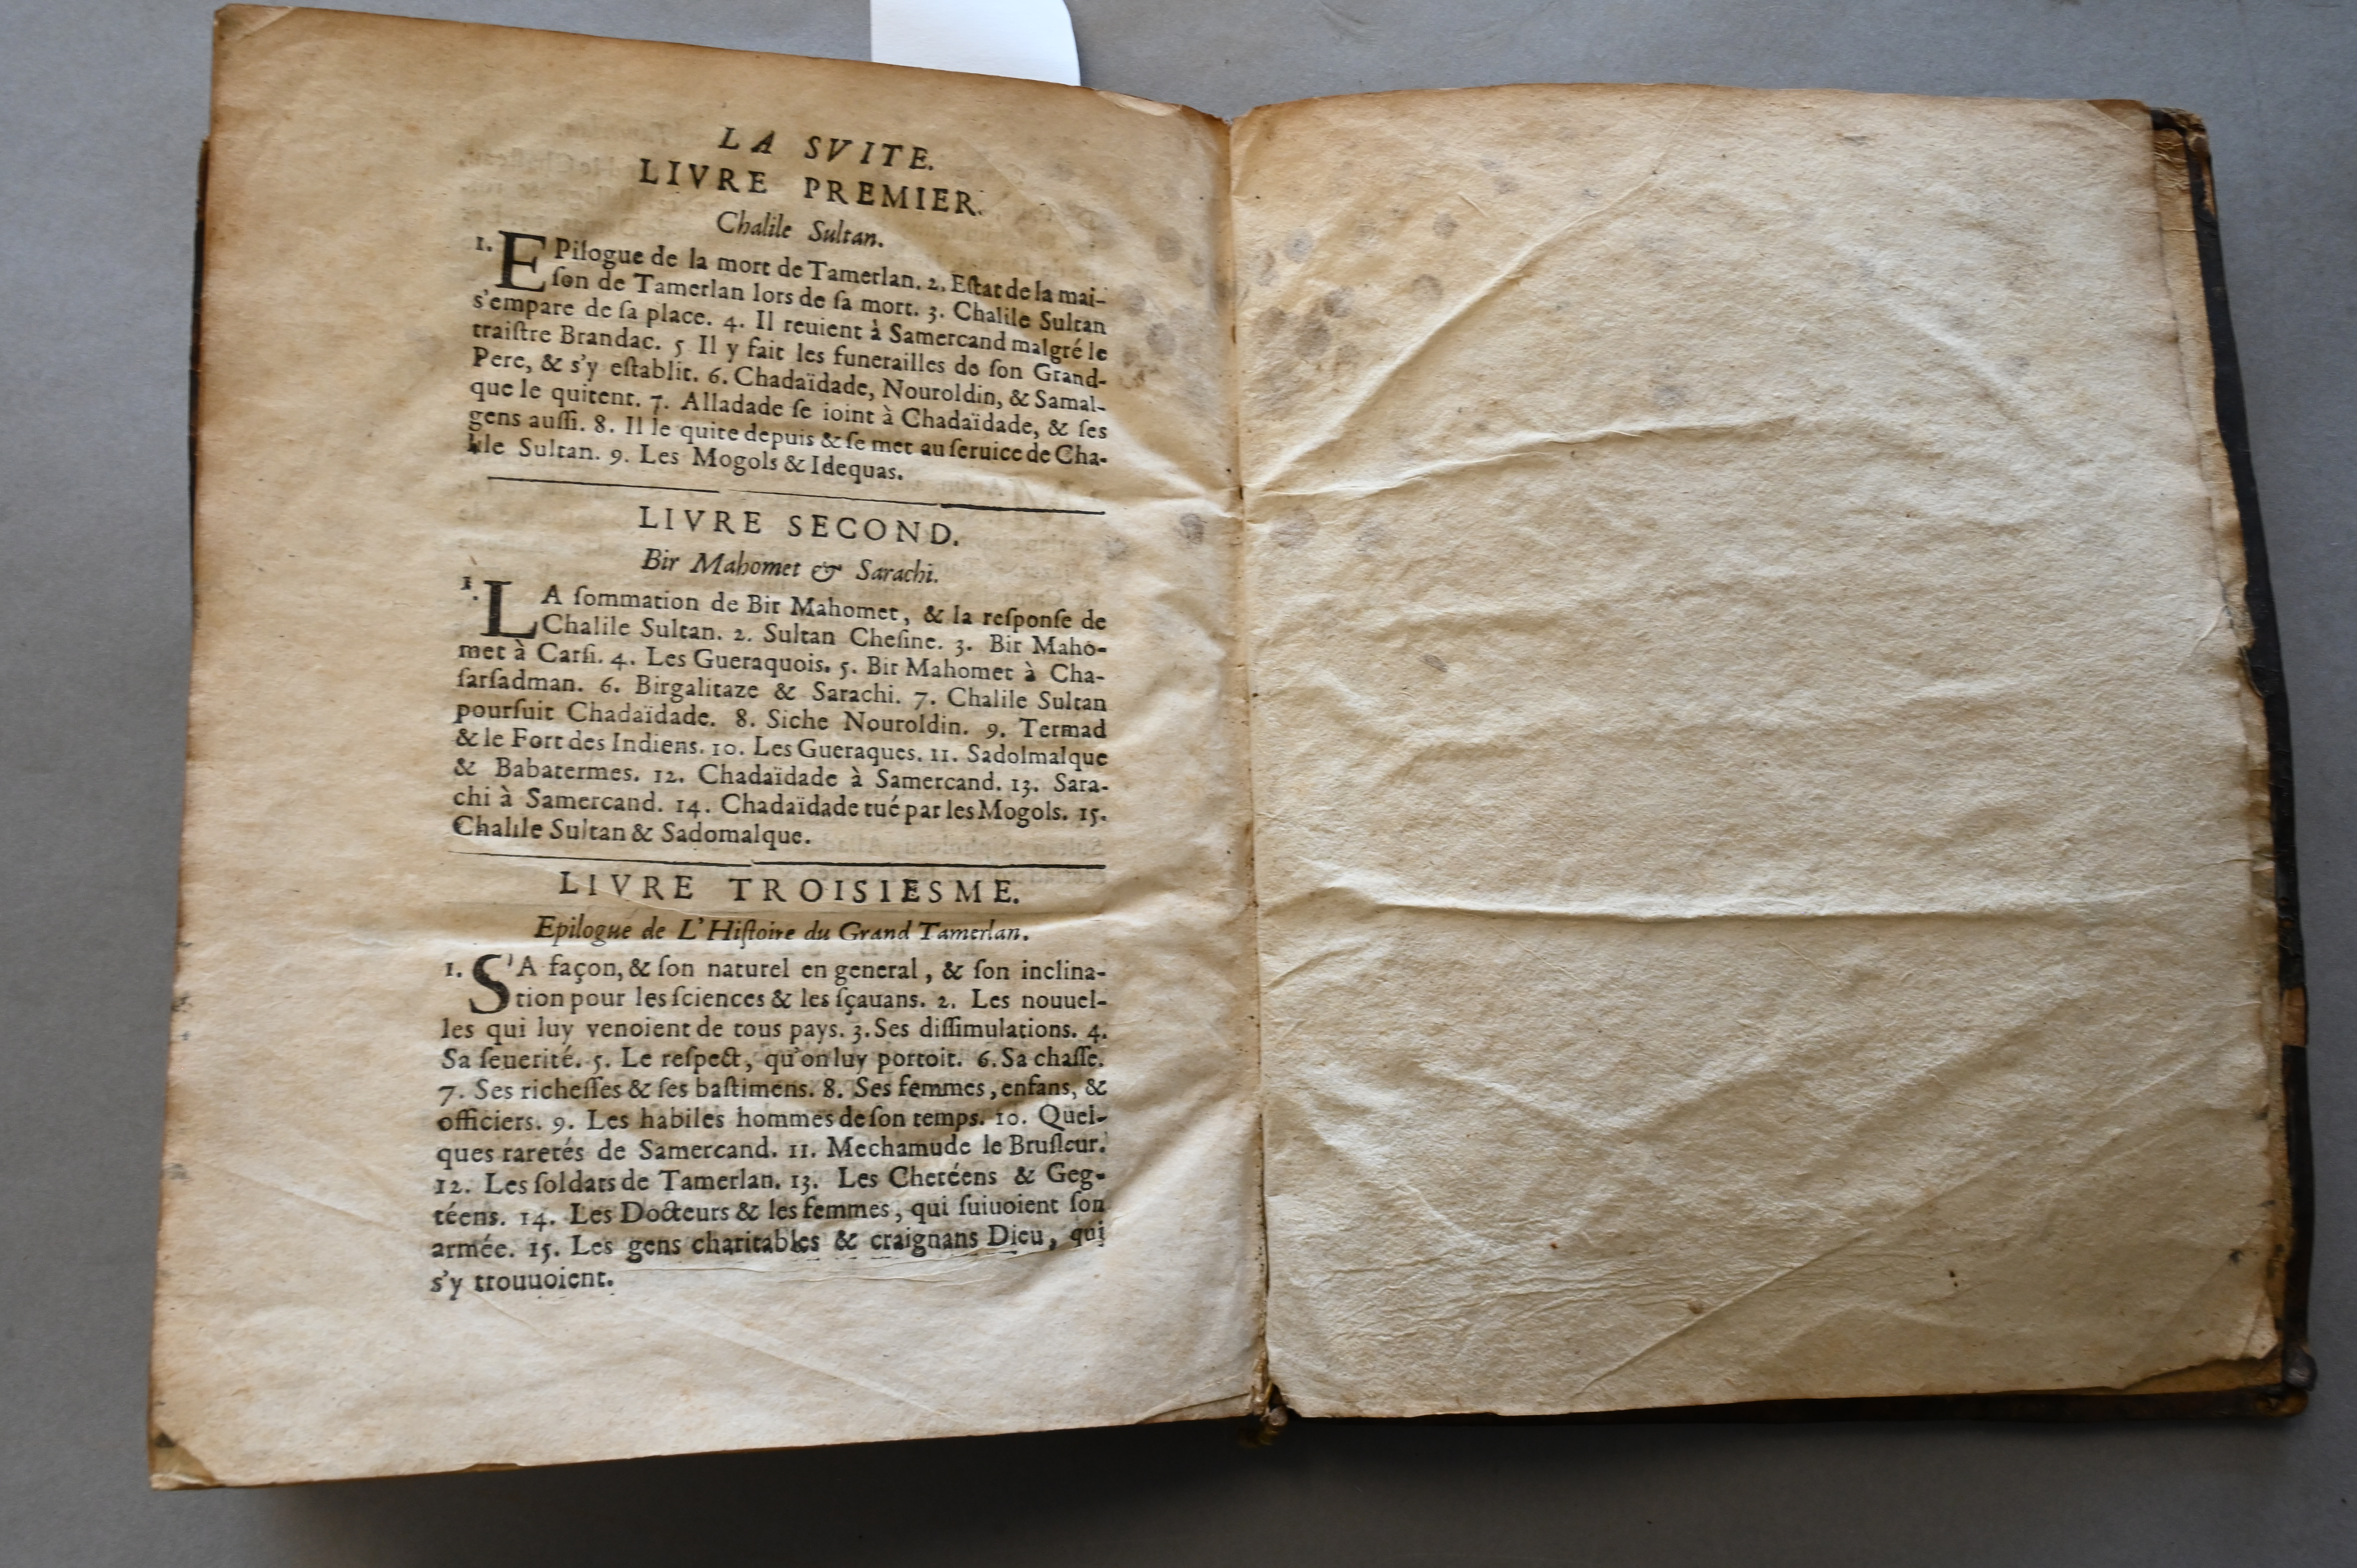 LA SVITE.
LIVRE PREMIER.
Chalile Sultan.
1. EPilogue de la mort de Tamerlan. 2. Eſtat de la mai-
ſon de Tamerlan lors de ſa mort. 3. Chalile Sultan
s'empare de ſa place. 4. Il reuient à Samercand malgré le
traiſtre Brandac. 5 Il y fait les funerailles de ſon Grand-
Pere, & s'y eſtablit. 6. Chadaïdade, Nouroldin, & Samal-
que le quitent. 7. Alladade ſe ioint à Chadaïdade, & ſes
gens auſſi. 8. Il le quite depuis & ſe met au ſeruice de Cha-
lile Sultan. 9. Les Mogols & Idequas.
LIVRE SECOND.
Bir Mahomet & Sarachi.
1. LA ſommation de Bir Mahomet, & la reſponſe de
Chalile Sultan. 2. Sultan Cheſine. 3. Bir Maho-
met à Carſi. 4. Les Gueraquois. 5. Bir Mahomet à Cha-
ſarſadman. 6. Birgalitaze & Sarachi. 7. Chalile Sultan
pourſuit Chadaïdade. 8. Siche Nouroldin. 9. Termad
& le Fort des Indiens. 10. Les Gueraques. 11. Sadolmalque
& Babatermes. 12. Chadaïdade à Samercand. 13. Sara-
chi à Samercand. 14. Chadaïdade tué par les Mogols. 15.
Chalile Sultan & Sadomalque.
LIVRE TROISIESME.
Epilogue de L'Hiſtoire du Grand Tamerlan.
1. S'A façon, & ſon naturel en general, & ſon inclina-
tion pour les ſciences & les ſçauans. 2. Les nouuel-
les qui luy venoient de tous pays. 3. Ses diſſimulations. 4.
Sa ſeuerité. 5. Le reſpect, qu'on luy portoit. 6. Sa chaſſe.
7. Ses richeſſes & ſes baſtimens. 8. Ses femmes, enfans, &
officiers. 9. Les habiles hommes de ſon temps. 10. Quel-
ques raretés de Samercand. 11. Mechamude le Bruſleur.
12. Les ſoldats de Tamerlan. 13. Les Chetéens & Geg-
téens. 14. Les Docteurs & les femmes, qui ſuiuoient ſon
armée. 15. Les gens charitables & craignans Dieu, qui
s'y trouuoient.